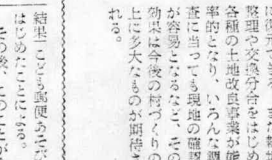 整理や交換分合をはじめ
各種の土地改良事業が能
率的となり、いろんな調
査に当っても現地の確認
が容易となるなど、その
効果は今後の村づくりの
上に多大なものが期待さ
れる。
結果、こども郵便あそび
はじめたことによる。